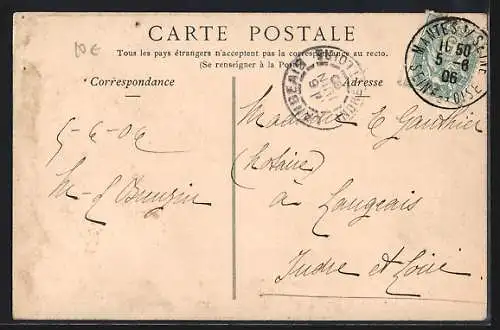 10 €
CARTE POSTALE
Tous les pays étrangers n'acceptent pas la correspondance au recto.
(Se renseigner à la Poste)
Correspondance
Adresse
MANTES S/SEINE
11 50
5 - 6
06
SEINE-ET-OISE
LANGEAIS
INDRE-ET-LOIRE
06
5-6-06
Madame E Gauthier
(Notaire)
à Langeais
Indre et Loire